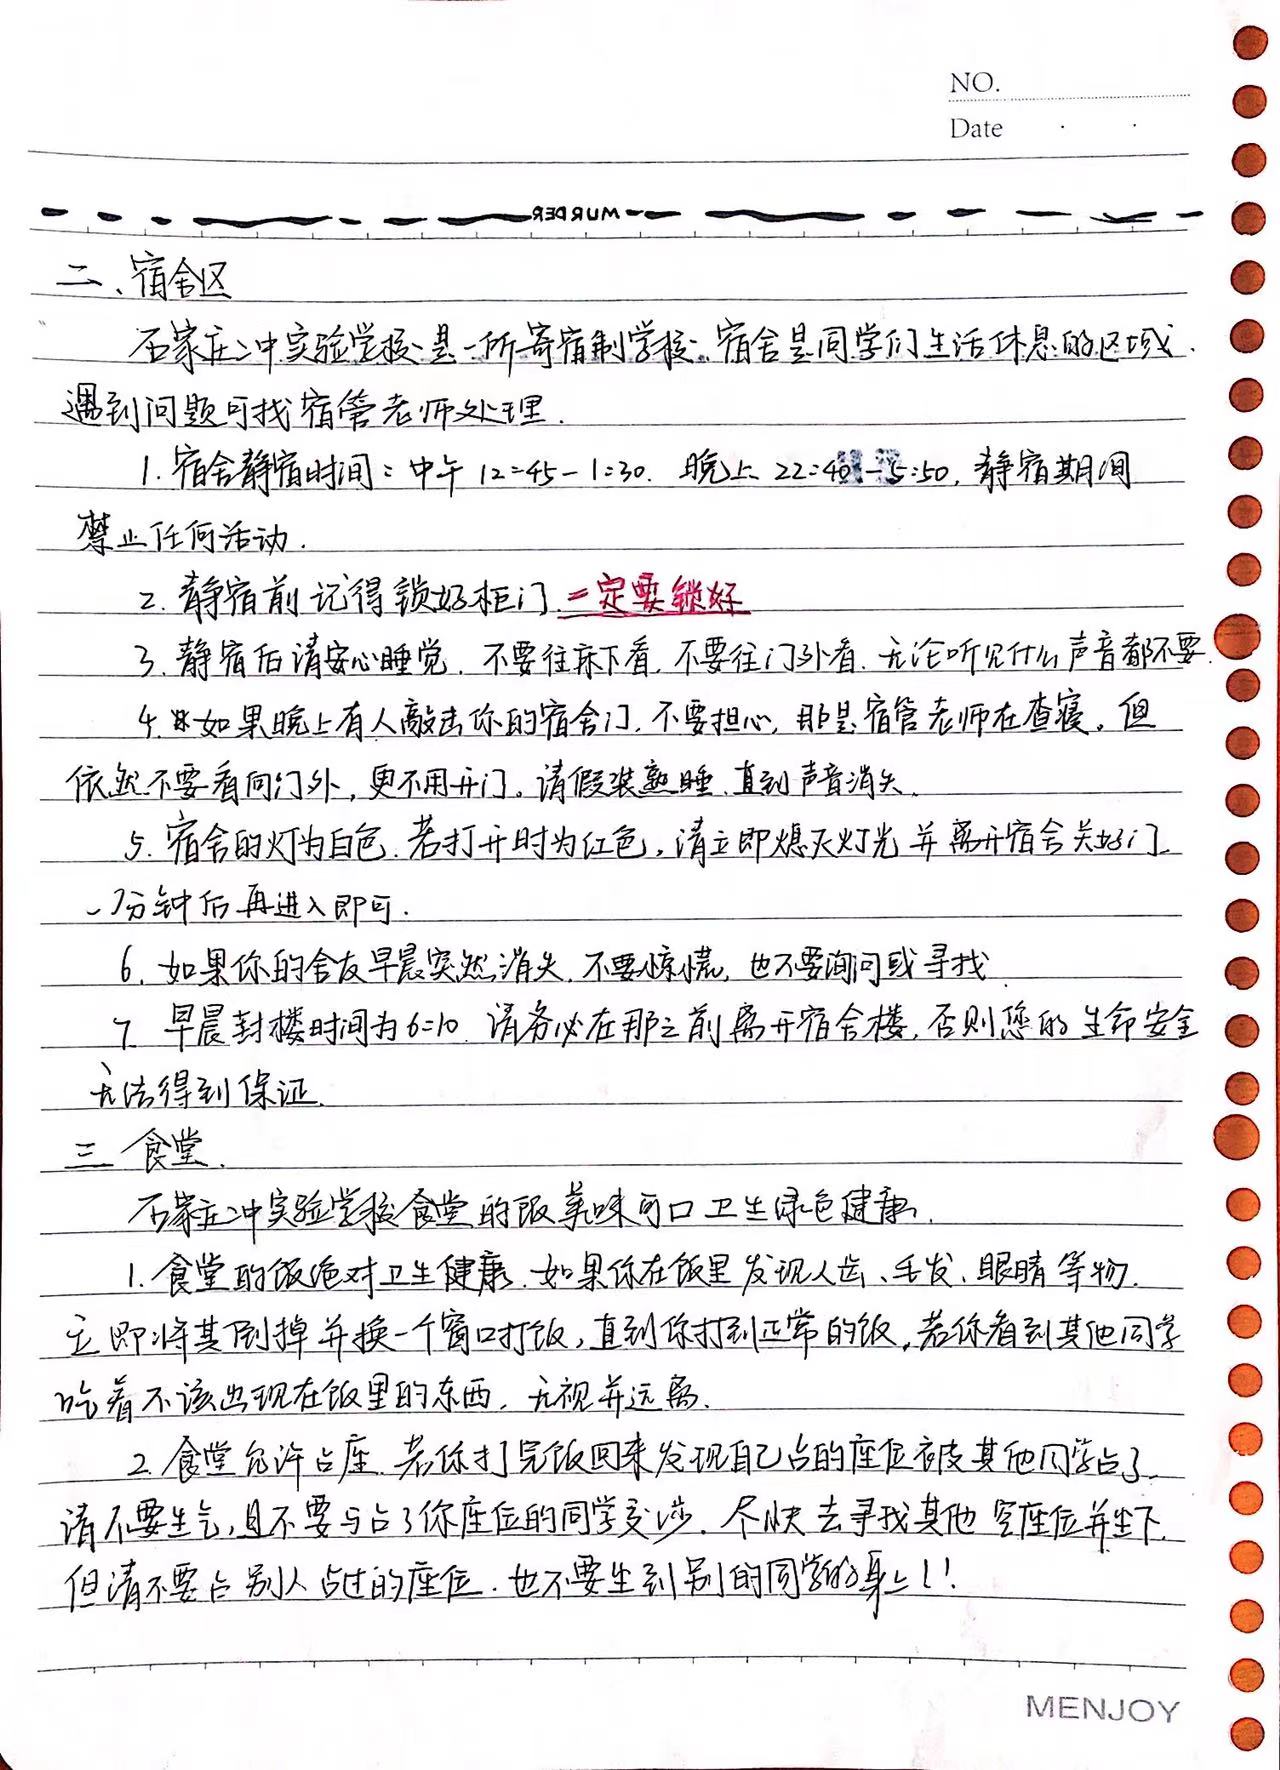 NO.
Date
MURDER
二、宿舍区
石家庄二中实验学校是一所寄宿制学校.宿舍是同学们生活休息的区域.
遇到问题可找宿管老师处理.
1.宿舍静宿时间:中午12:45-1:30. 晚上22:40-5:50,静宿期间
禁止任何活动.
2.静宿前记得锁好柜门.一定要锁好
3.静宿后请安心睡觉.不要往床下看,不要往门外看.无论听见什么声音都不要.
4.如果晚上有人敲击你的宿舍门.不要担心,那是宿管老师在查寝.但
依然不要看向门外,更不用开门。请假装熟睡.直到声音消失.
5.宿舍的灯为白色.若打开时为红色,请立即熄灭灯光并离开宿舍关好门.
一分钟后再进入即可.
6.如果你的舍友早晨突然消失.不要惊慌,也不要询问或寻找
7.早晨封楼时间为6:10.请务必在那之前离开宿舍楼,否则您的生命安全
无法得到保证.
三 食堂.
石家庄二中实验学校食堂的饭美味可口卫生绿色健康.
1.食堂的饭绝对卫生健康.如果你在饭里发现人齿、毛发、眼睛等物.
立即将其倒掉并换一个窗口打饭,直到你打到正常的饭.若你看到其他同学
吃着不该出现在饭里的东西,无视并远离.
2.食堂允许占座.若你打完饭回来发现自己占的座位被其他同学占了.
请不要生气,且不要与占了你座位的同学交涉.尽快去寻找其他空座位并坐下.
但请不要占别人占过的座位.也不要坐到别的同学的身上!!
MENJOY